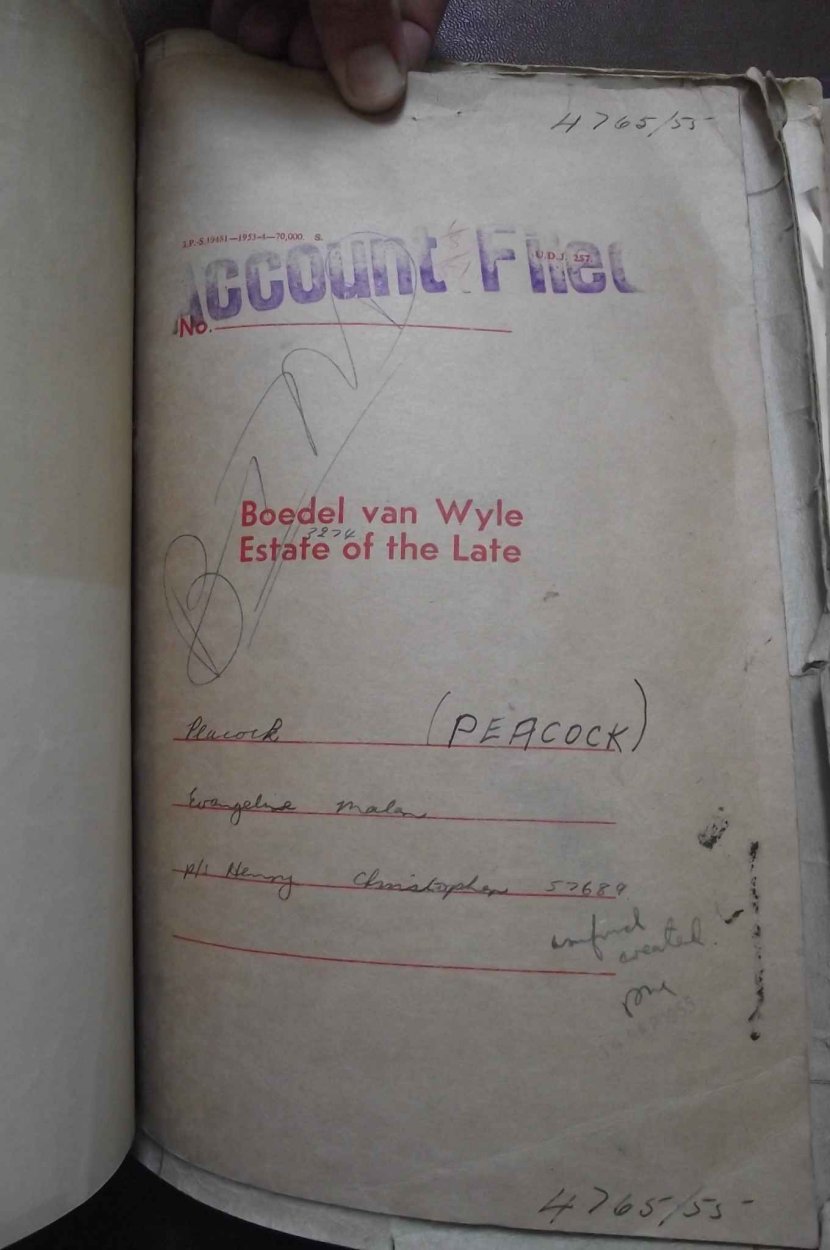 4765/55
J.P.-S.19461—1953-4—70,000. S.
U.D.J. 257.
Account Filed
No.
Boedel van Wyle
3274
Estate of the Late
Peacock (PEACOCK)
Evangeline Malan
p/s Henry Christopher 57689
created
4765/55